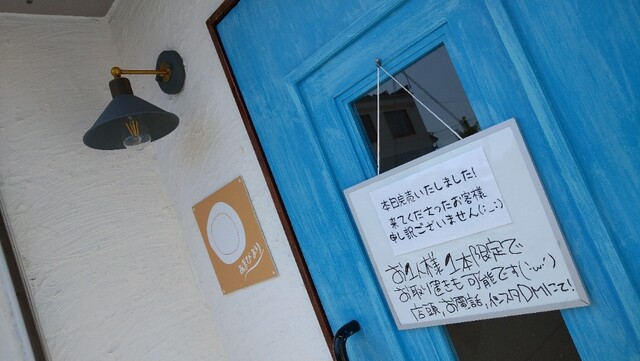 本日完売いたしました!
来てくださったお客様
申し訳ございません(;_;)
お1人様1本限定で
お取り置きも可能です(;ω;)
店頭,お電話,インスタDMにて!